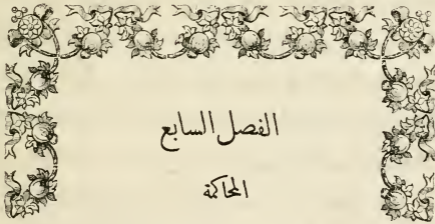 الفصل السابع
المحاكمة